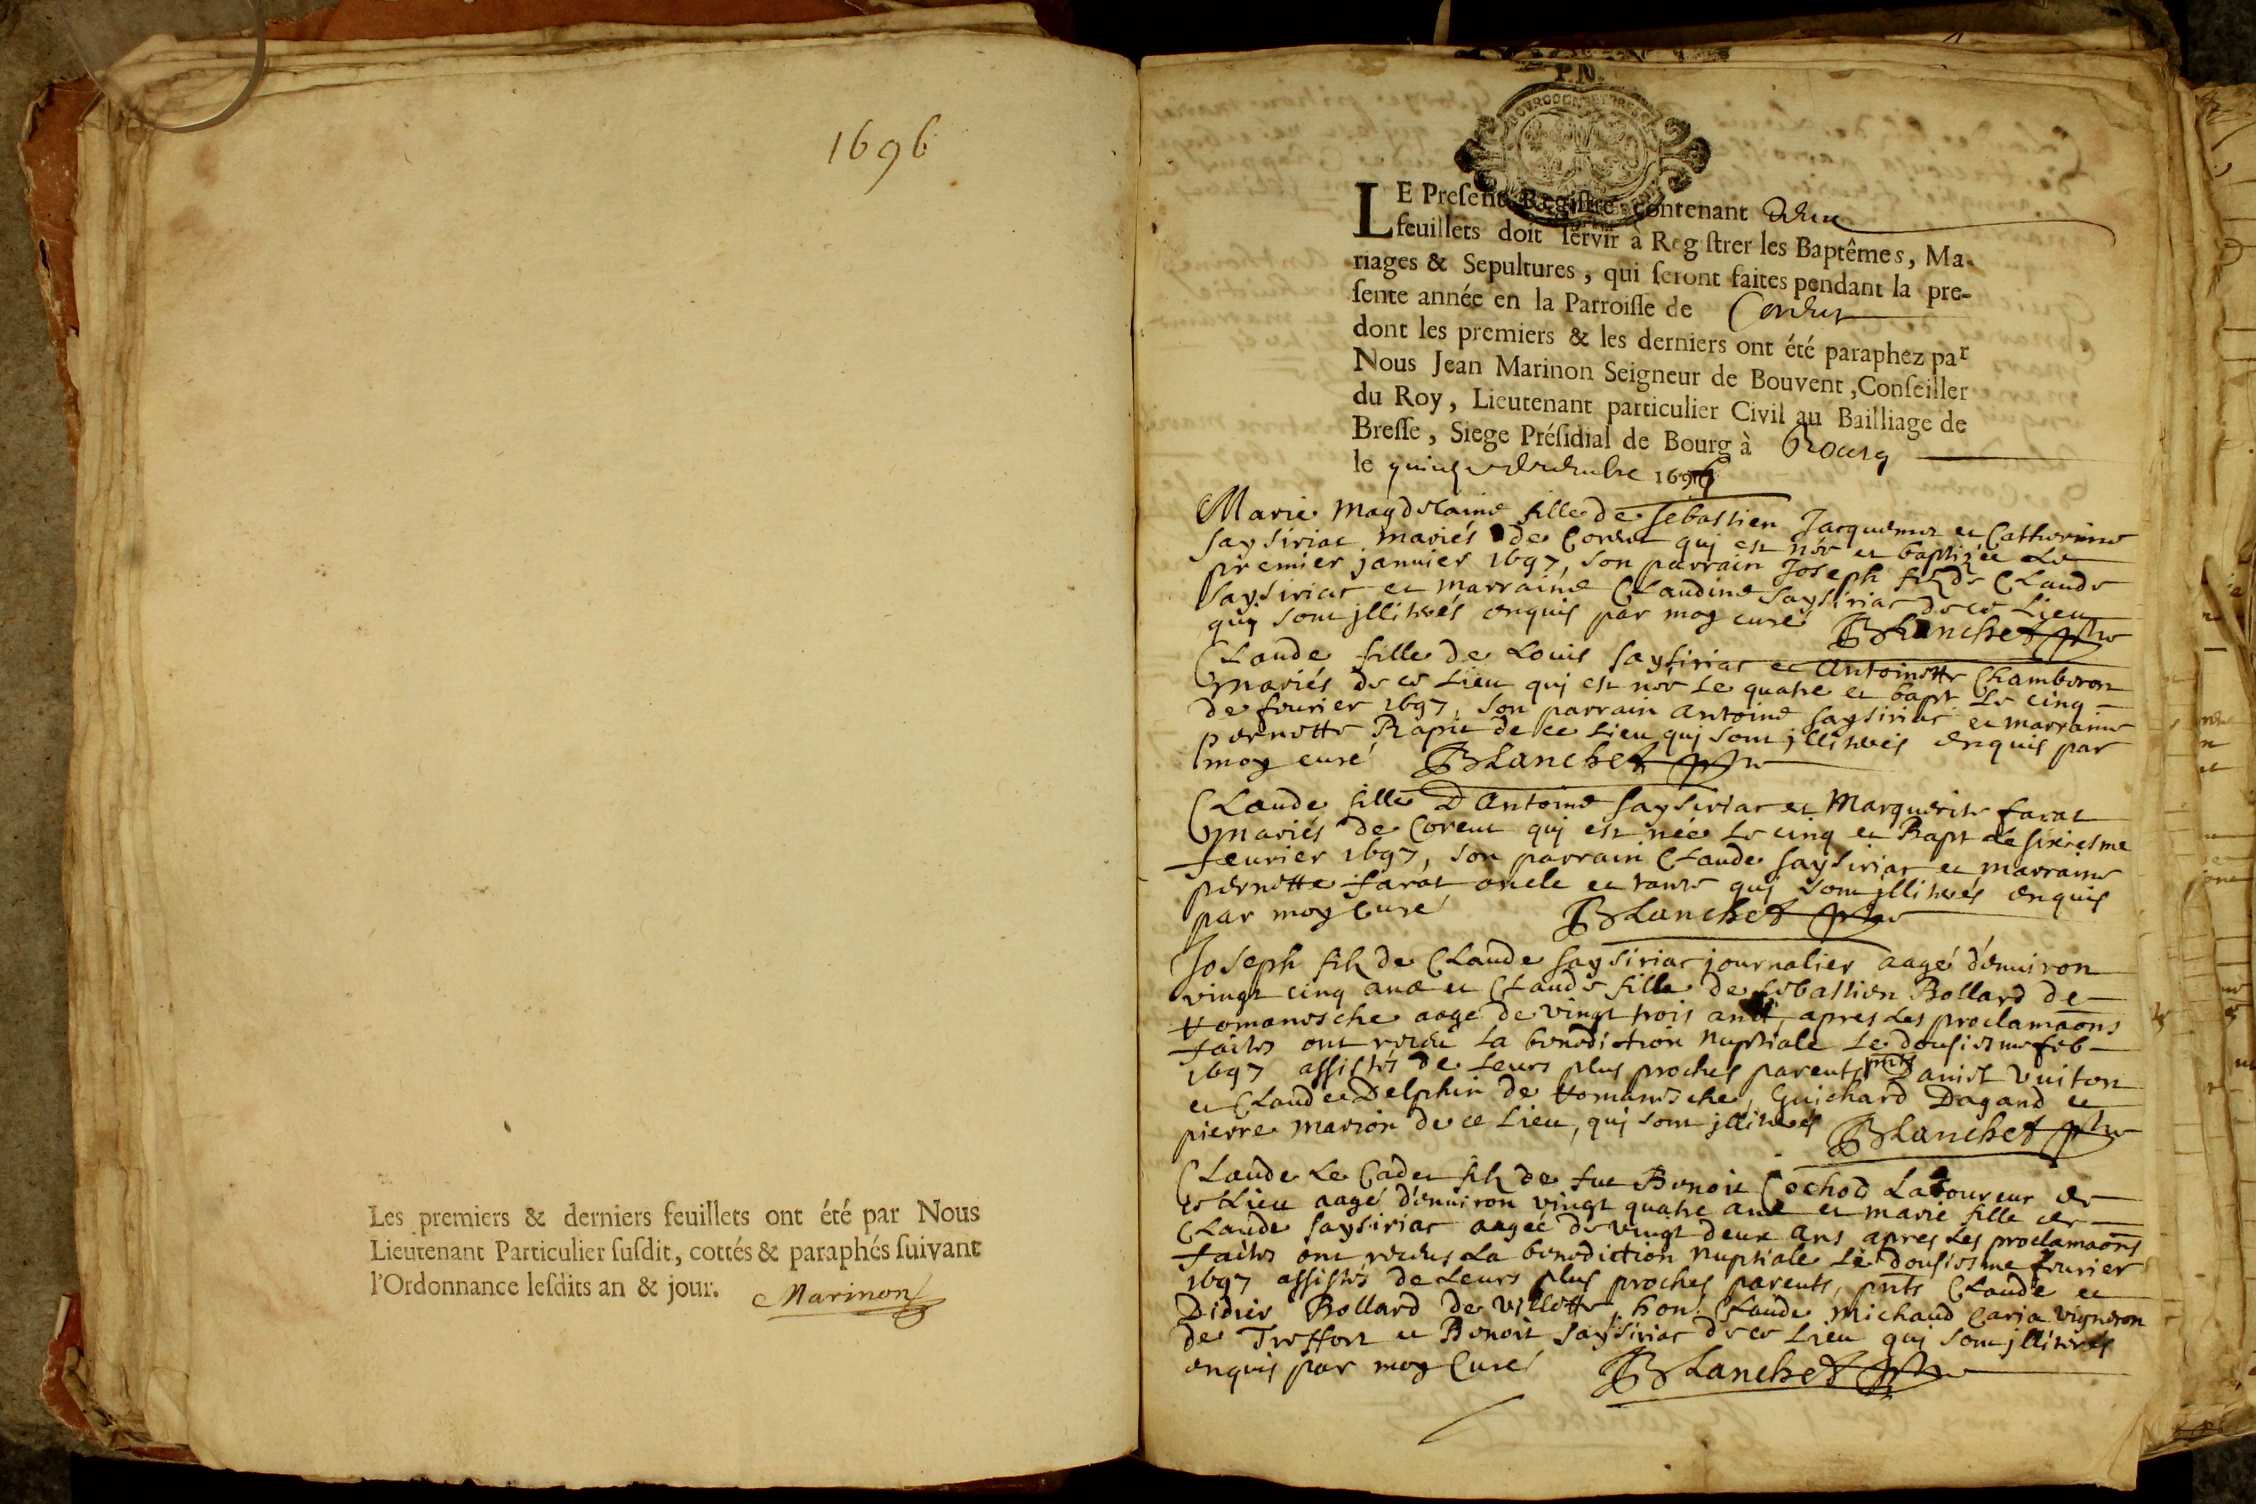 1696
Les premiers & derniers feuillets ont été par Nous
Lieutenant Particulier ſuſdit, cottés & paraphés ſuivant
l'Ordonnance leſdits an & jour. Marinon
P.N.
LE Preſent Regiſtre contenant
feuillets doit ſervir à Regſtrer les Baptêmes, Ma-
riages & Sepultures, qui ſeront faites pendant la pre-
ſente année en la Parroiſſe de
dont les premiers & les derniers ont été paraphez par
Nous Jean Marinon Seigneur de Bouvent, Conſeiller
du Roy, Lieutenant particulier Civil au Bailliage de
Breſſe, Siege Préſidial de Bourg à Bourg
le 1696
Marie Magdelaine fille de Sebastien Jacquemet et Catherine
Saysiriat mariés de Corent qui est née et baptizée le
premier januier 1697, son parrain Joseph filz de Claude
Saysiriat et marraine Claudine Saysiriat de ce Lieu
quj sont jllitrés enquis par moy curé Blanchet ptre
Claude fille de Louis Saysiriat et Antoinette Chamberon
mariés de ce Lieu quj est née le quatre et bapt. le cinq
de feurier 1697, son parrain Antoine Saysiriat et marraine
pernette de ce Lieu quj sont jllitrés enquis par
moy curé Blanchet ptre
Claude fille D'Antoine Saysiriat et Marguerite farat
mariés de Corent quj est née le cinq et Bapt le sixiesme
feurier 1697, son parrain Claude Saysiriat et marraine
pernette farat oncle et tante quj sont jllitrés enquis
par moy Curé Blanchet ptre
Joseph filz de Claude Saysiriat journalier aagé d'enuiron
vingt cinq ans et Claude fille de Sebastien Bollard de
Romanesche aagé de vingt trois ans, apres les proclamaons
faites ont receu la benediction nuptiale le dousiesme feb
1697 assistés de leurs plus proches parents pnts Daniel Vuiton
et Claude Delphin de Romanesche, Guichard Dagand et
pierre Marion de ce Lieu, quj sont jllitrés Blanchet ptre
Claude le Cadet filz de fut Benoit Cochod Laboureur de
ce Lieu aagé d'enuiron vingt quatre ans et marie fille de
Claude Saysiriat aagée de vingt deux ans apres les proclamaons
faites ont receus la benediction nuptiale le dousiesme feurier
1697 assistés de leurs plus proches parents, pnts Claude et
Didier Bollard de Villette, hon. Claude Michaud Caria vigneron
de Treffort et Benoit Saysiriat de ce Lieu quj sont jllitrés
enquis par moy Curé Blanchet ptre